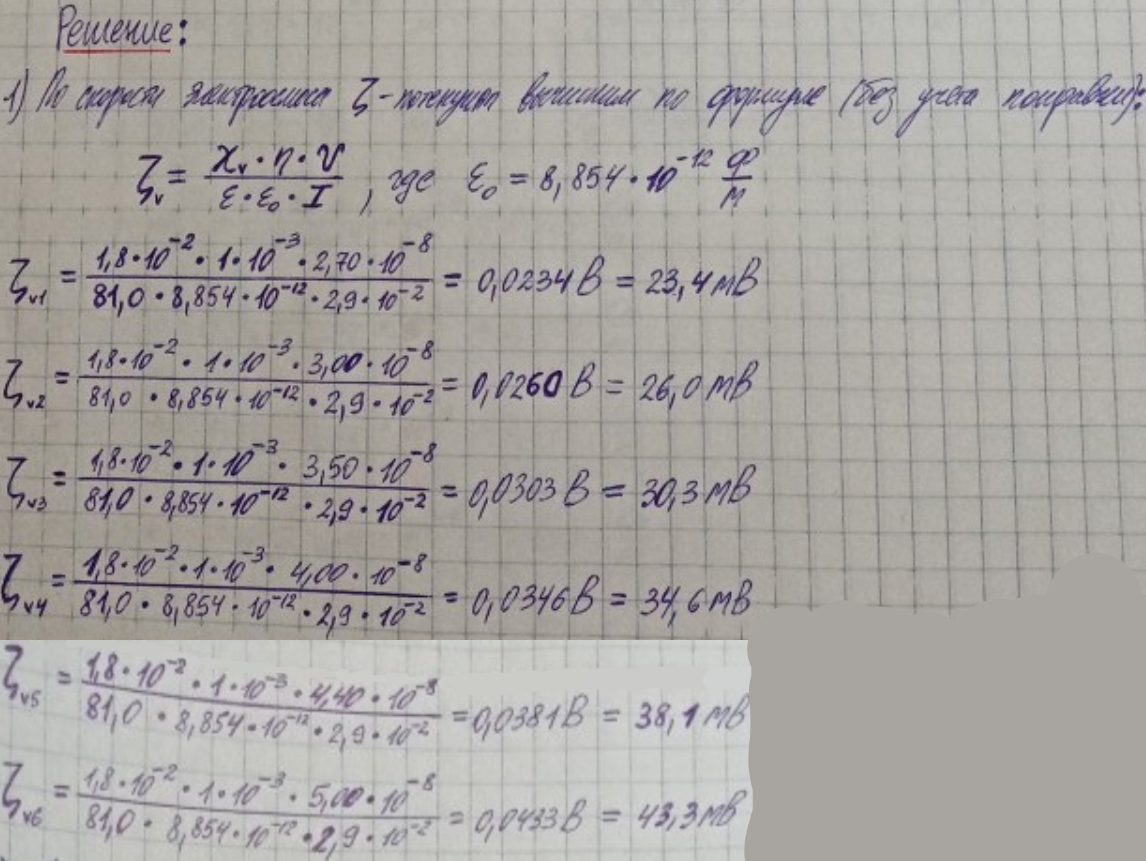 Решение:
1) По скорости электроосмоса ζ-потенциал вычислим по формуле (без учета поправки):
ζv = (χv · η · v) / (ε · ε₀ · I), где ε₀ = 8,854 · 10⁻¹² Ф/м
ζv1 = (1,8·10⁻² · 1·10⁻³ · 2,70·10⁻⁸) / (81,0 · 8,854·10⁻¹² · 2,9·10⁻²) = 0,0234 В = 23,4 мВ
ζv2 = (1,8·10⁻² · 1·10⁻³ · 3,00·10⁻⁸) / (81,0 · 8,854·10⁻¹² · 2,9·10⁻²) = 0,0260 В = 26,0 мВ
ζv3 = (1,8·10⁻² · 1·10⁻³ · 3,50·10⁻⁸) / (81,0 · 8,854·10⁻¹² · 2,9·10⁻²) = 0,0303 В = 30,3 мВ
ζv4 = (1,8·10⁻² · 1·10⁻³ · 4,00·10⁻⁸) / (81,0 · 8,854·10⁻¹² · 2,9·10⁻²) = 0,0346 В = 34,6 мВ
ζv5 = (1,8·10⁻² · 1·10⁻³ · 4,40·10⁻⁸) / (81,0 · 8,854·10⁻¹² · 2,9·10⁻²) = 0,0381 В = 38,1 мВ
ζv6 = (1,8·10⁻² · 1·10⁻³ · 5,00·10⁻⁸) / (81,0 · 8,854·10⁻¹² · 2,9·10⁻²) = 0,0433 В = 43,3 мВ